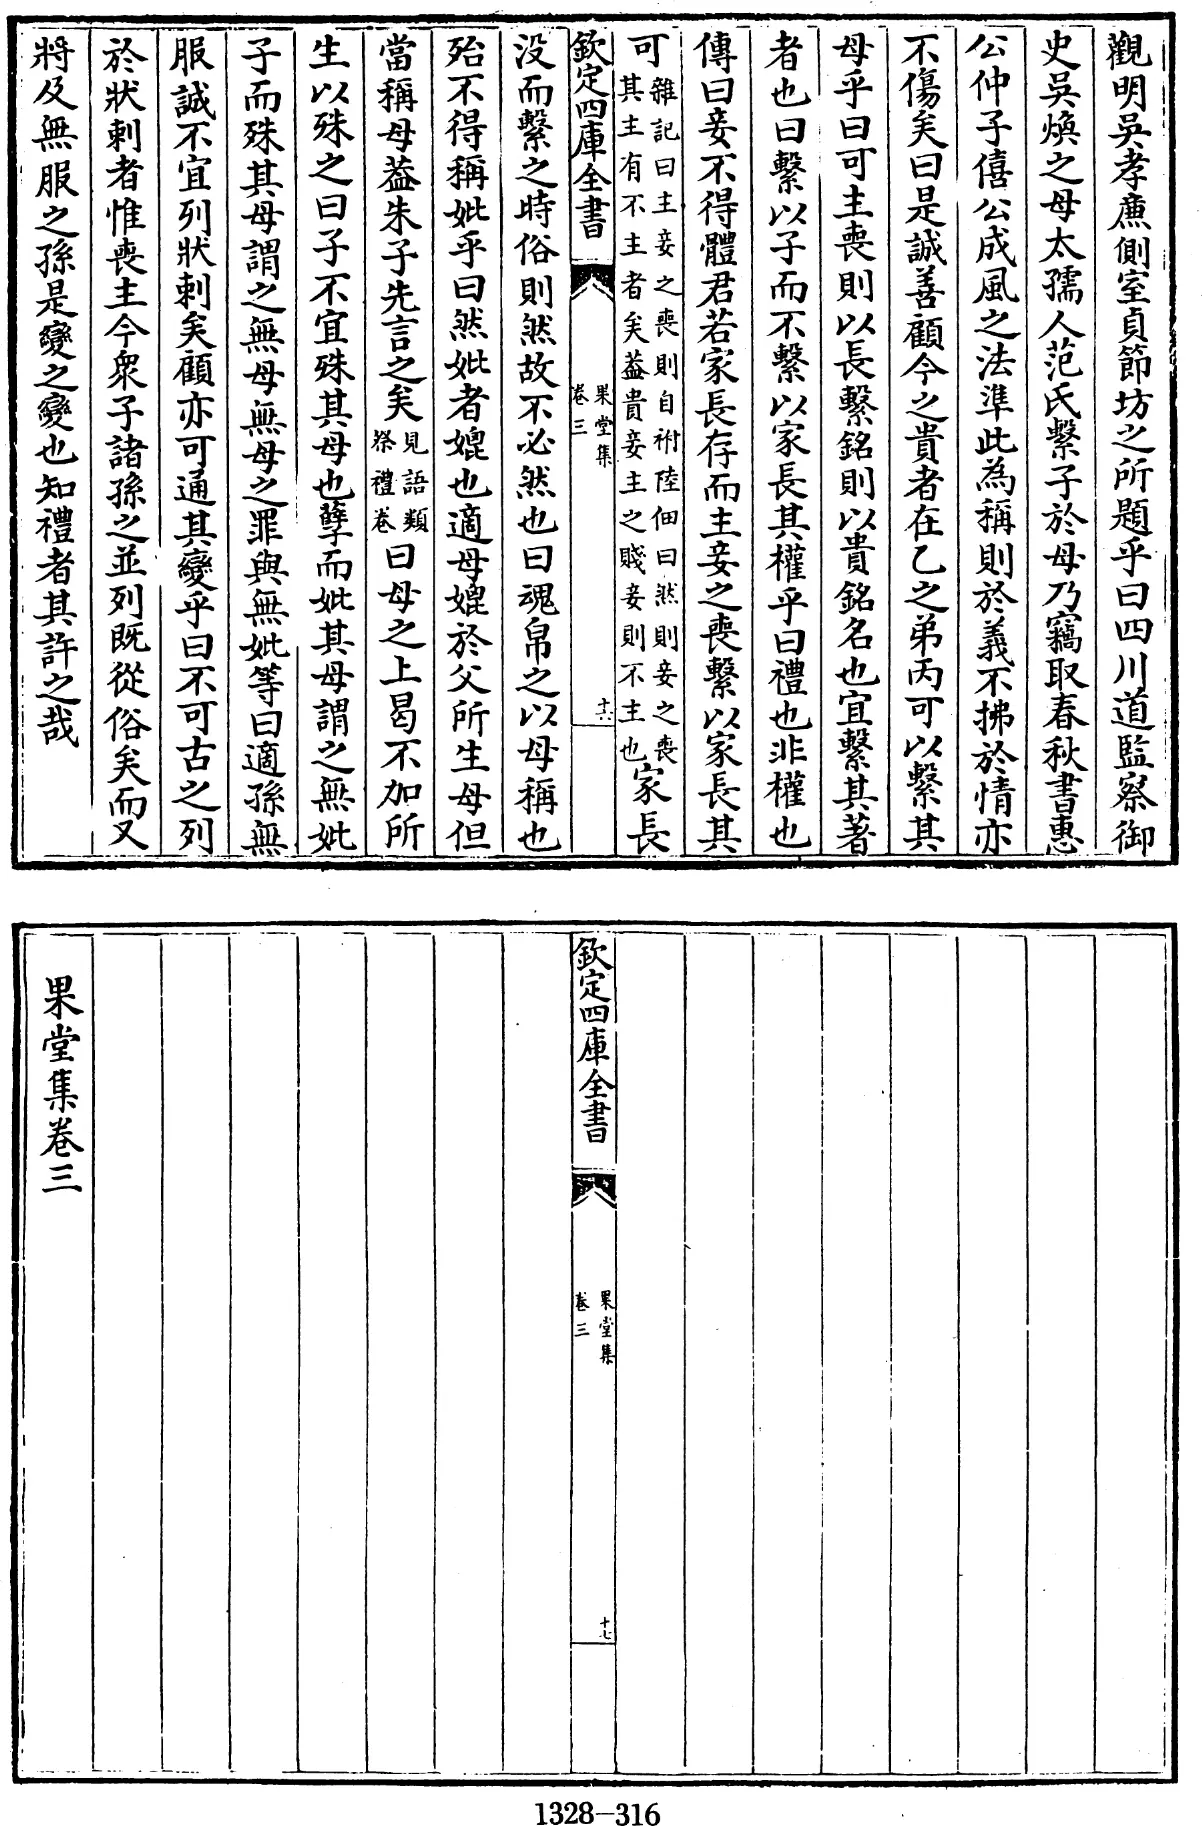 觀明吳孝廉側室貞節坊之所題乎曰四川道監察御
史吳煥之母太孺人范氏繫子於母乃竊取春秋書惠
公仲子僖公成風之法準此為稱則於義不拂於情亦
不傷矣曰是誠善顧今之貴者在乙之弟丙可以繫其
母乎曰可主喪則以長繫銘則以貴銘名也宜繫其著
者也曰繫以子而不繫以家長其權乎曰禮也非權也
傳曰妾不得體君若家長存而主妾之喪繫以家長其
可雜記曰主妾之喪則自祔陸佃曰然則妾之喪
其主有不主者矣葢貴妾主之賤妾則不主也家長
欽定四庫全書
果堂集
卷三
十六
没而繫之時俗則然故不必然也曰魂帛之以母稱也
殆不得稱妣乎曰然妣者媲也適母媲於父所生母但
當稱母葢朱子先言之矣見語類
祭禮卷曰母之上曷不加所
生以殊之曰子不宜殊其母也孽而妣其母謂之無妣
子而殊其母謂之無母無母之罪與無妣等曰適孫無
服誠不宜列狀刺矣顧亦可通其變乎曰不可古之列
於狀刺者惟喪主今衆子諸孫之並列既從俗矣而又
將及無服之孫是變之變也知禮者其許之哉
欽定四庫全書
果堂集
卷三
十七
果堂集卷三
1328-316